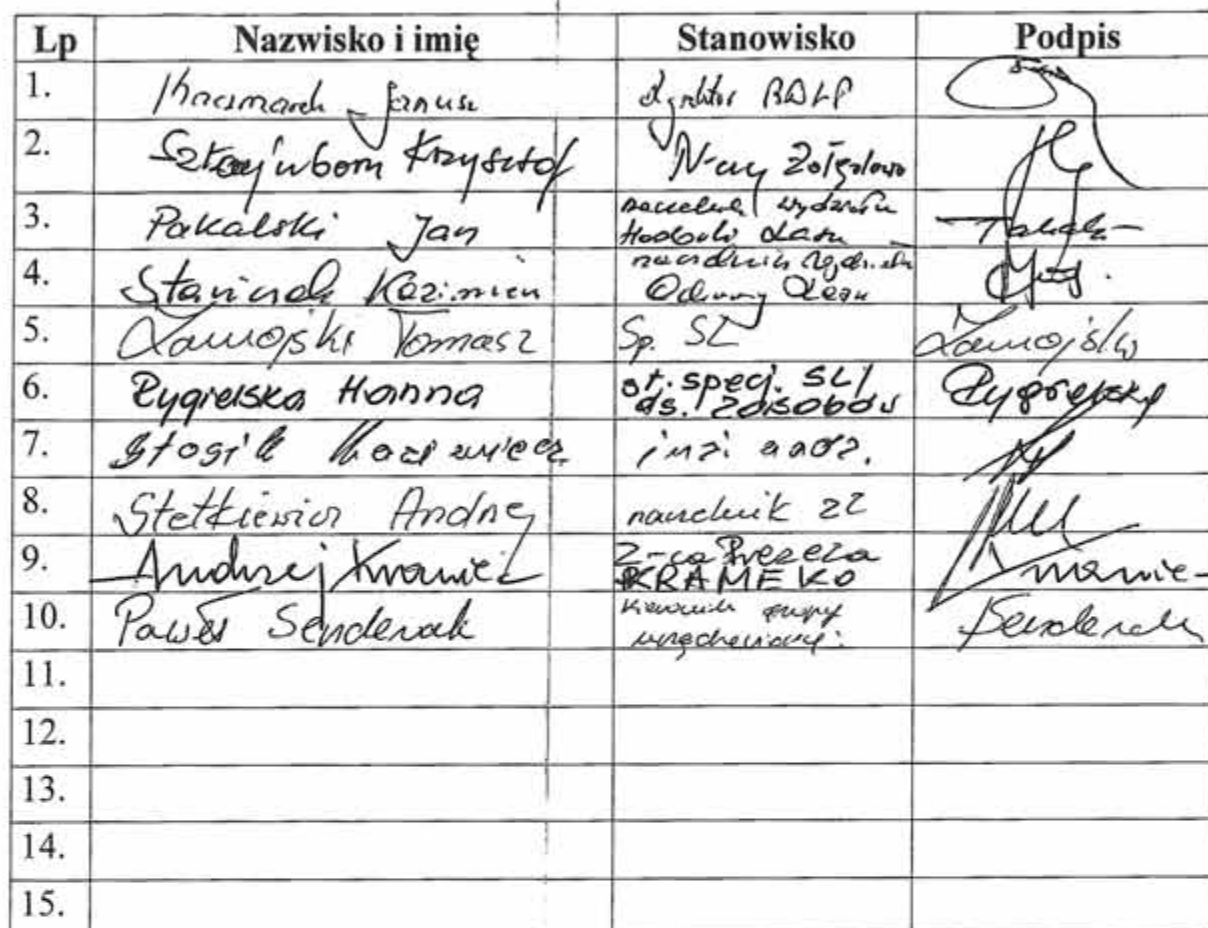 Lp Nazwisko i imię Stanowisko Podpis
1. Kaczmarek Janusz Dyrektor RDLP
2. Krzysztof N-czy
3. Pakalski Jan naczelnik wydziału
Hodowli Lasu
4. Kazimierz naczelnik wydziału
Ochrony Lasu
5. Zamojski Tomasz Sp. SL Zamojski
6. Rygielska Hanna st. specj. SL/
ds. zasobów Rygielska
7. Stosik Kazimierz inż. nadz.
8. Stetkiewicz Andrzej naczelnik ZZ
9. Andrzej Krawiec Z-ca Prezesa
KRAMEKO
10. Paweł Senderak kierownik grupy
Senderak
11.
12.
13.
14.
15.